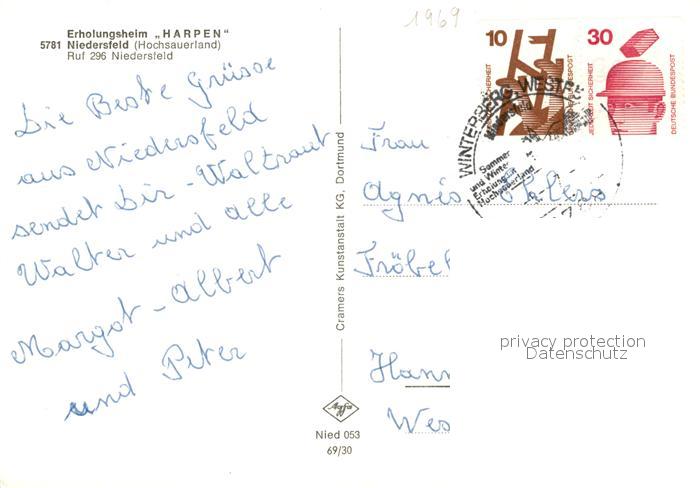 1969
Erholungsheim „HARPEN"
5781 Niedersfeld (Hochsauerland)
Ruf 296 Niedersfeld
Die Beste Grüsse
aus Niedersfeld
sendet Dir - Waltraut
Walter und alle
Margot - Albert
und Peter
Cramers Kunstanstalt KG, Dortmund
Agfa
Nied 053
69/30
10
30
JEDERZEIT SICHERHEIT
DEUTSCHE BUNDESPOST
WINTERBERG, WESTF
Niedersfeld
Sommer
und Winter
Erholung im
Hochsauerland
Frau
Agnes Ohlers
Fröbel
Hann
Wes
privacy protection
Datenschutz